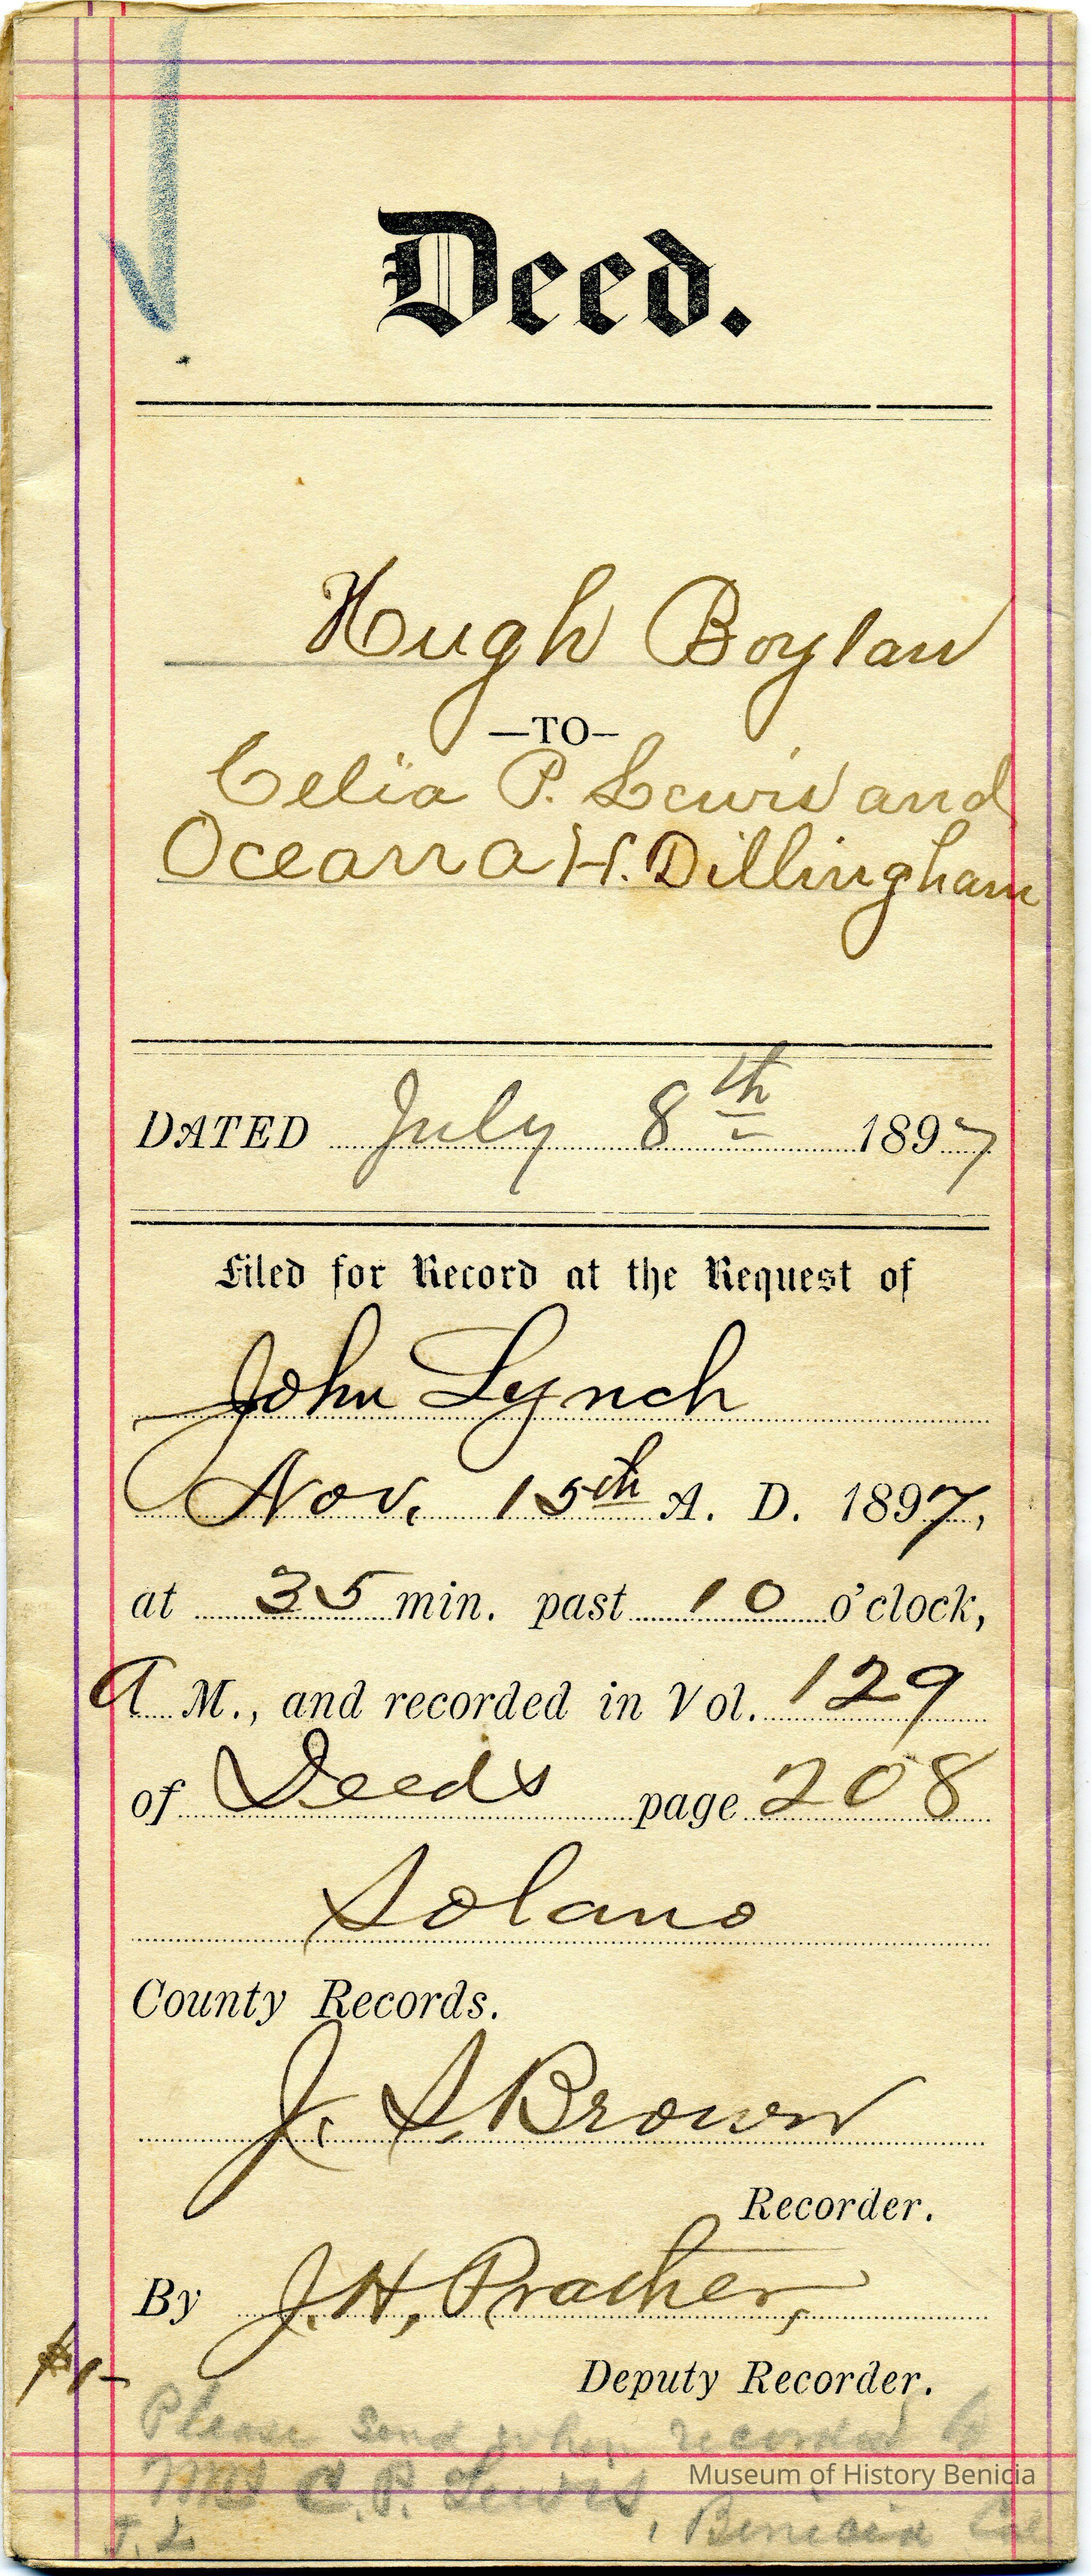 Deed.
Hugh Boylan
—TO—
Celia P. Lewis and
Oceanna H. Dillingham
DATED July 8th 1897
Filed for Record at the Request of
John Lynch
Nov. 15th A. D. 1897,
at 35 min. past 10 o'clock,
A M., and recorded in Vol. 129
of Deeds page 208
Solano
County Records.
J. S. Brown
Recorder.
By J. H. Pracher,
Deputy Recorder.
$1-
Please send when recorded to
Mrs C. P. Lewis, Benicia Cal
J. L
Museum of History Benicia